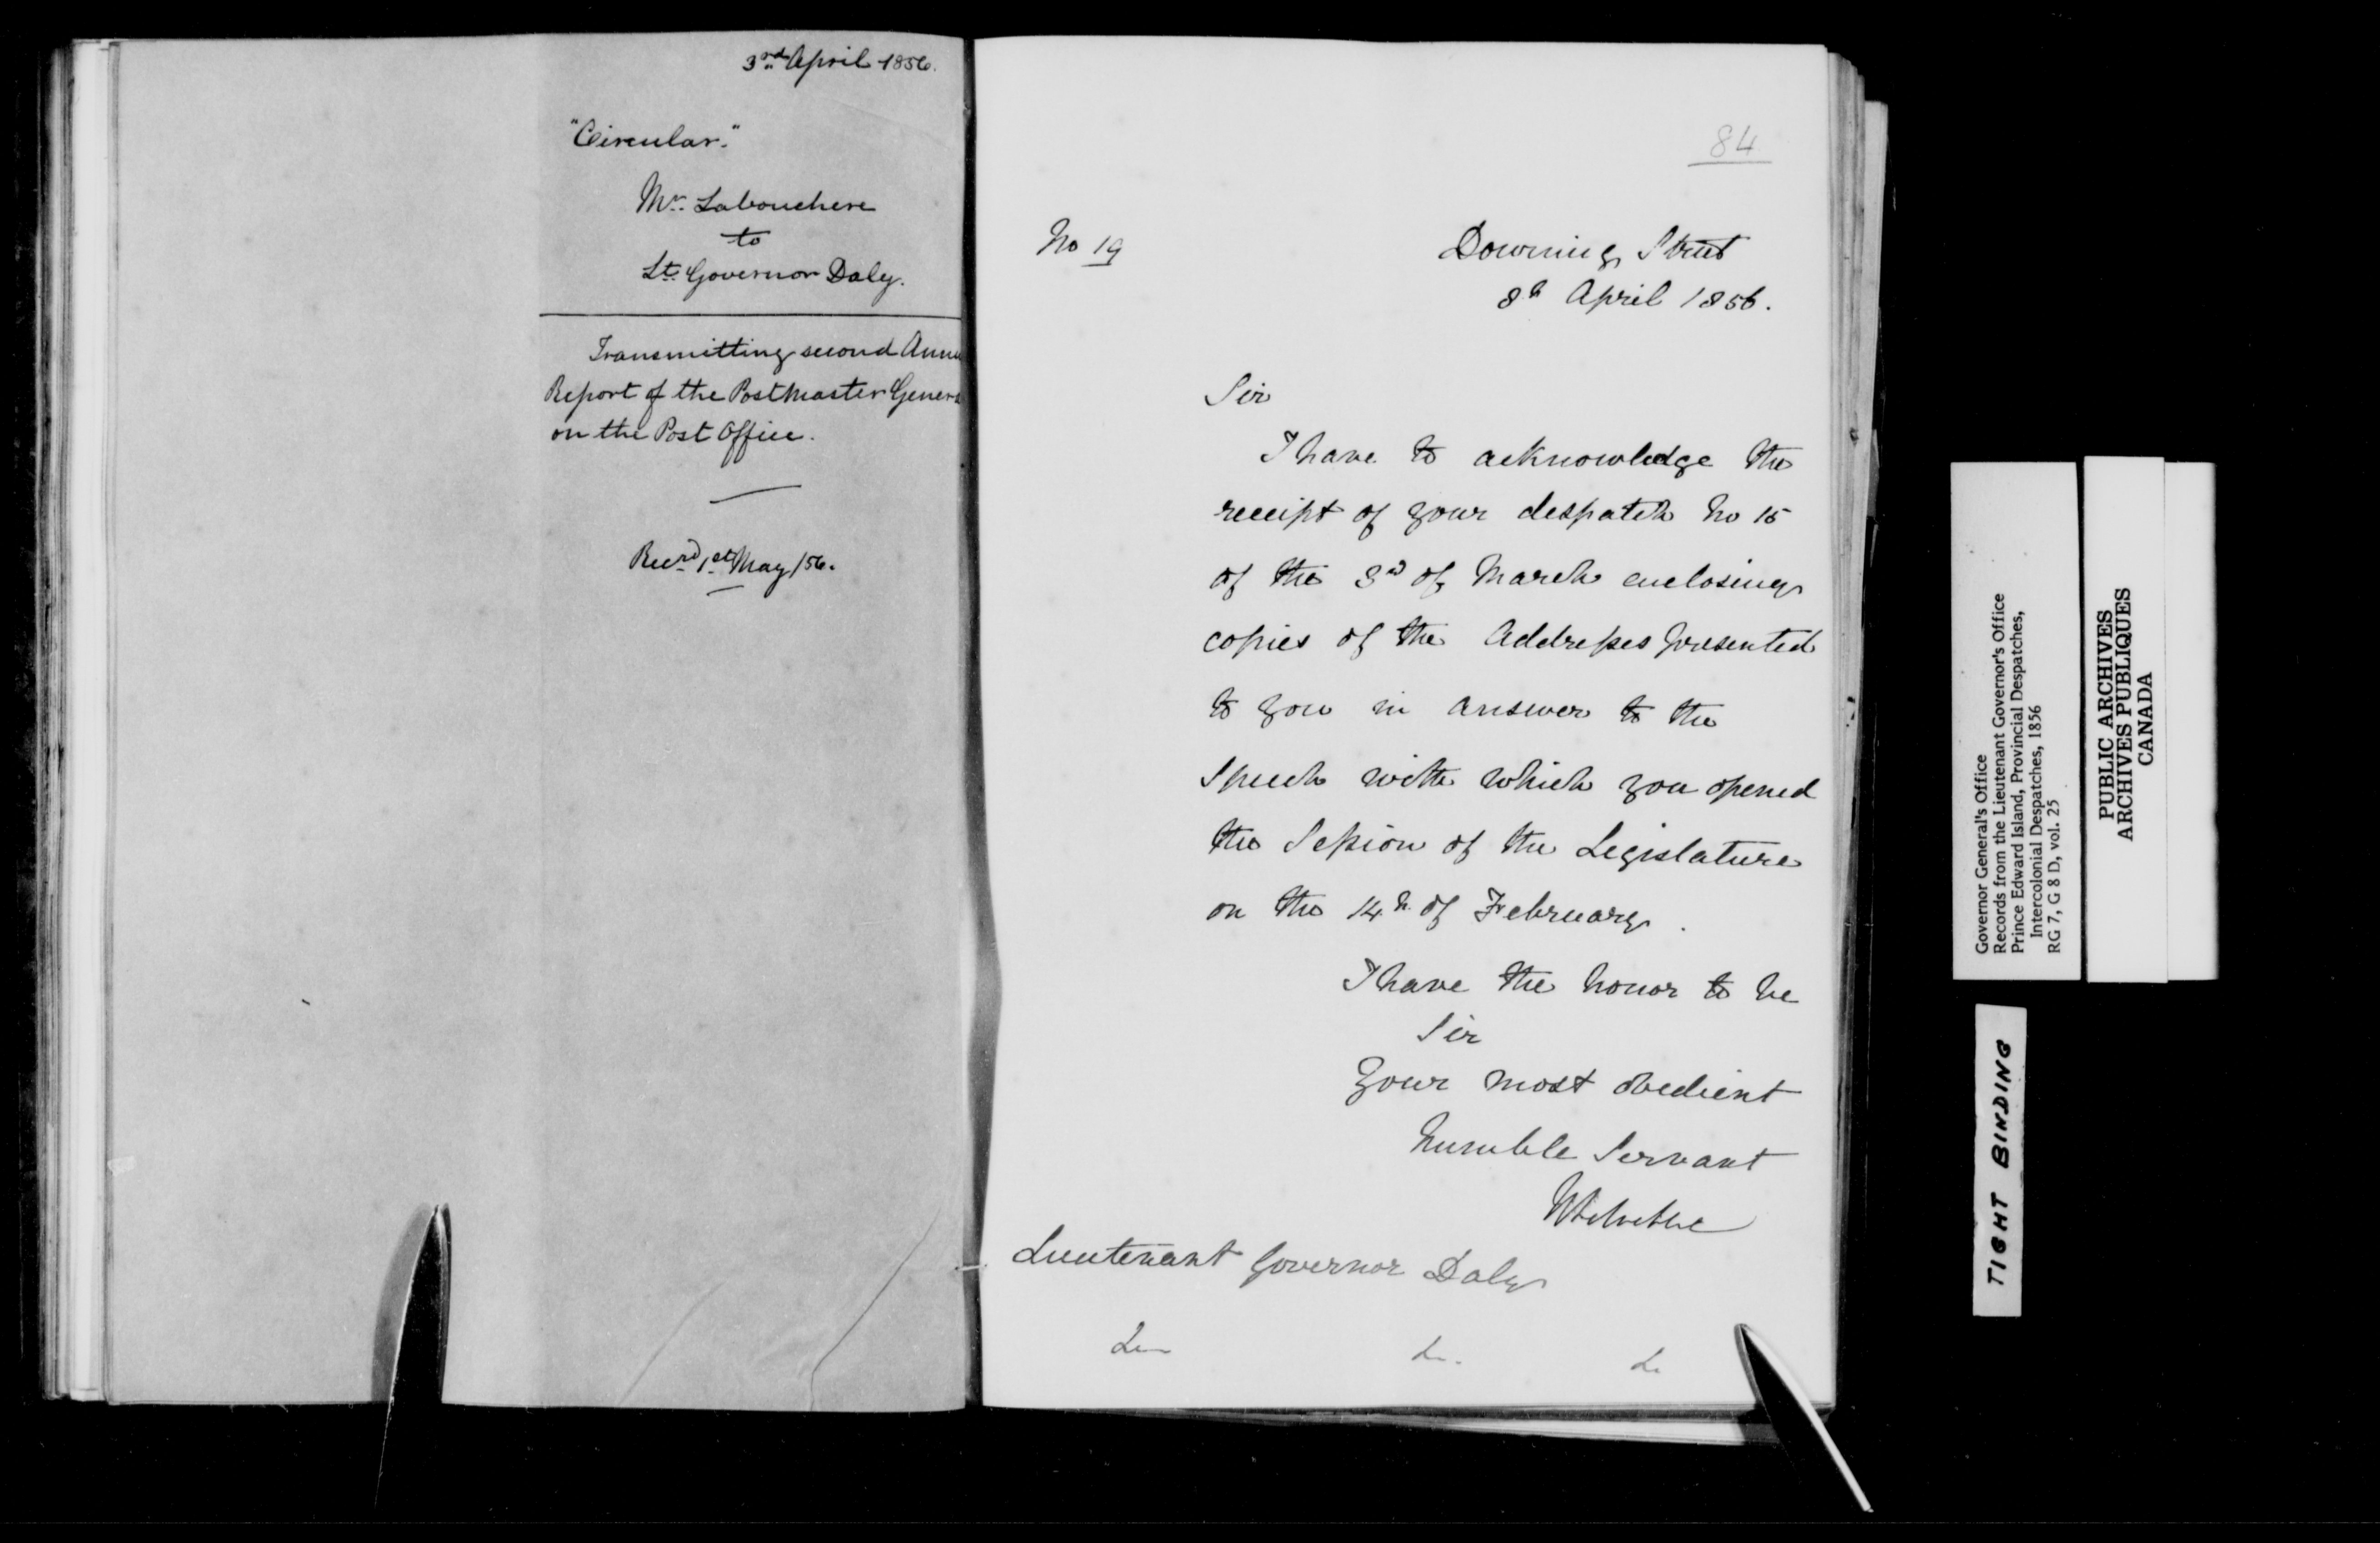 3rd April 1856.
"Circular."
Mr. Labouchere
to
Lt. Governor Daly.
Transmitting second Annu
Report of the Postmaster Genera
on the Post Office.
Recd 1st May /56.
84
No 19
Downing Street
8h April 1856.
Sir
I have to acknowledge the
receipt of your despatch No 15
of the 3rd of March enclosing
copies of the Addresses presented
to you in answer to the
Speech with which you opened
the Session of the Legislature
on the 14h of February.
I have the honor to be
Sir
Your most obedient
humble Servant
Lieutenant Governor Daly
Governor General's Office
Records from the Lieutenant Governor's Office
Prince Edward Island, Provincial Despatches,
Intercolonial Despatches, 1856
RG 7, G 8 D, vol. 25
PUBLIC ARCHIVES
ARCHIVES PUBLIQUES
CANADA
TIGHT BINDING